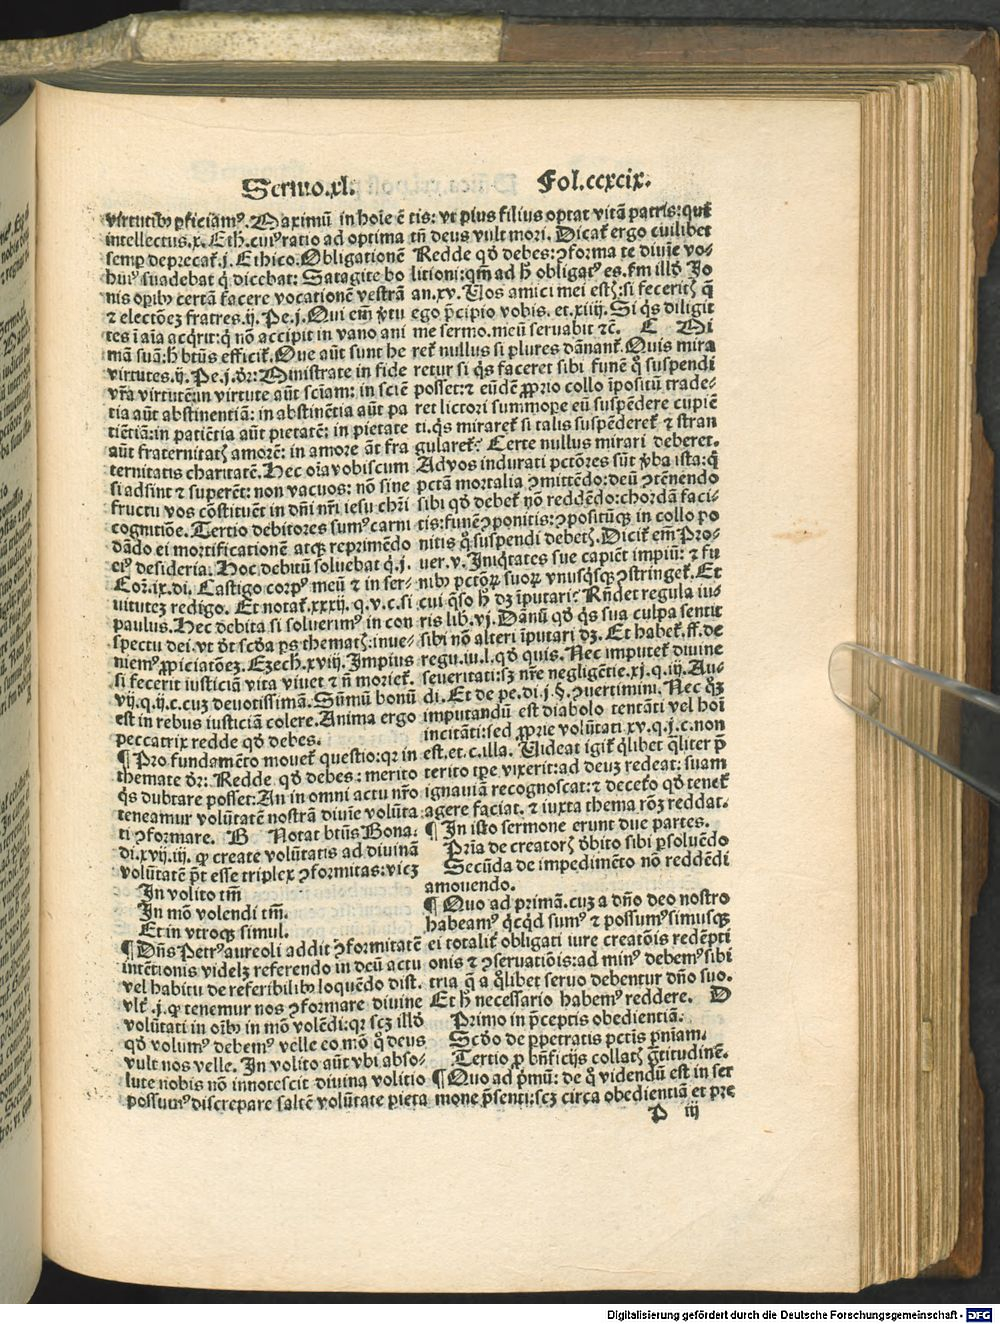 Sermo.xl.
Fol.ccxcix.
virtutibꝰ ꝑficiamꝰ. Maximū in hoīe ē
intellectus.x. Eth. cuiꝰ ratio ad optima
semꝑ deprecat̄.j. Ethico. Obligationē
huiꝰ suadebat q̇ dicebat: Satagite bo
nis oꝑibꝰ certā facere vocationē vestrā
⁊ electōez fratres.ij. Pe.j. Qui em̄ v̓tu
tes ī aīa acq̇rit: q̇ nō accipit in vano ani
mā suā: h̄ btūs efficit̄. Que aūt sunt he
virtutes.ij. Pe.j. dr̄: Ministrate in fide
vr̄a virtutē: in virtute aūt scīam: in sciē
tia aūt abstinentiā: in abstinētia aūt pa
tiētiā: in patiētia aūt pietatē: in pietate
aūt fraternitatꝭ amorē: in amore āt fra
ternitatis charitatē. Hec oīa vobiscum
si adsint ⁊ superēt: non vacuos: nō sine
fructu vos cōstituēt in dn̄i nr̄i iesu chr̄i
cognitiōe. Tertio debitores sumꝰ carni
dādo ei mortificationē atqꝫ reprimēdo
eiꝰ desideria. Hoc debitū soluebat q̇.j.
Cor̄.ix.di. Castigo corpꝰ meū ⁊ in ser-
uitutez redigo. Et notat̄.xxxij.q.v.c.si
paulus. Hec debita si soluerimꝰ in con
spectu dei. vt dr̄ scd̄a ps thematꝭ: inue-
niemꝰ ꝓpiciatōez. Ezech.xviij. Impius
si fecerit iusticiā vita viuet ⁊ n̄ moriet̄.
vij.q.ij.c.cuz deuotissimā. Sūmū bonū
est in rebus iusticiā colere. Anima ergo
peccatrix redde qd̓ debes.
¶ Pro fundamēto mouet̄ questio: qꝛ in
themate dr̄: Redde qd̓ debes: merito
q̇s dubtare posset: An in omni actu nr̄o
teneamur volūtatē nostrā diuīe volūta
ti ꝯformare. B Notat btūs Bona.
di.xvij.iij. ꝙ create volūtatis ad diuinā
volūtatē pt̄ esse triplex ꝯformitas: vicꝫ
In volito tm̄
In mō volendi tm̄.
Et in vtroqꝫ simul.
¶ Dn̄s Petrꝰ aureoli addit ꝯformitatē
intētionis videlꝫ referendo in deū actu
vel habitu de referibilibꝰ loquēdo dist.
vlt̄.j. ꝙ tenemur nos ꝯformare diuine
volūtati in oībꝰ in mō volēdi: qꝛ scꝫ illd̓
qd̓ volumꝰ debemꝰ velle eo mō q̊ deus
vult nos velle. In volito aūt vbi abso-
lute nobis nō innotescit diuina volitio
possumꝰ discrepare saltē volūtate pieta
tis: vt pius filius optat vitā patris: quē
tn̄ deus vult mori. Dicat̄ ergo cuilibet
Redde qd̓ debes: ꝯforma te diuīe vo-
litioni: qm̄ ad h̄ obligatꝰ es. s̄m illd̓ Jo
an.xv. Uos amici mei estꝭ: si feceritꝭ q̄
ego p̄cipio vobis. et.xiiij. Si q̇s diligit
me sermo. meū seruabit ⁊c̄. C Mi
ret̄ nullus si plures dānant̄. Quis mira
retur si q̇s faceret sibi funē q̊ suspendi
posset: ⁊ eūdē ꝓprio collo īpositū trade-
ret lictori summope eū suspēdere cupiē
ti. q̇s miraret̄ si talis suspēderet̄ ⁊ stran
gularet̄? Certe nullus mirari deberet.
Ad vos indurati pctōres sūt v̓ba ista: q̇
pctā mortalia ꝯmittēdo: deū ꝯtēnendo
sibi qd̓ debet̄ nō reddēdo: chordā faci-
tis: funē ꝯponitis: ꝯpositūqꝫ in collo po
nitis q̊ suspendi debetꝭ. Dicit̄ em̄ Pro-
uer.v. Iniq̇tates sue capiēt impiū: ⁊ fu
nibꝰ pctōꝝ suoꝝ vnusq̇sqꝫ ꝯstringet̄. Et
cui q̄so h̄ dꝫ īputari? Rn̄det regula iu-
ris lib.vj. Dānū qd̓ q̇s sua culpa sentit
sibi nō alteri īputari dꝫ. Et habet̄.ff.de
regu.iu.l.qd̓ quis. Nec imputet̄ diuine
seueritati: sꝫ nr̄e negligētie.xj.q.iij. Au-
di. Et de pe.di.j.§.ꝯuertimini. Nec q̊ꝫ
imputandū est diabolo tentāti vel hoī
incitāti: sed ꝓprie volūtati xv.q.j.c.non
est. et.c.illa. Uideat igit̄ q̇libet q̇liter p̄
terito tꝑe vixerit: ad deuz redeat: suam
ignauiā recognoscat: ⁊ decet̄o qd̓ tenet̄
agere faciat. ⁊ iuxta thema rōꝫ reddat.
¶ In isto sermone erunt due partes.
Pr̄ia de creatorꝭ d̓bito sibi ꝑsoluēdo
Secūda de impedimēto nō reddēdi
amouendo.
¶ Quo ad primā. cuz a dn̄o deo nostro
habeamꝰ q̇cq̇d sumꝰ ⁊ possumꝰ simusqꝫ
ei totalit̄ obligati iure creatōis redēpti
onis ⁊ ꝯseruatiōis: ad minꝰ debemꝰ sibi
tria q̄ a q̇libet seruo debentur dn̄o suo.
Et h̄ necessario habemꝰ reddere. D
Primo in p̄ceptis obedientiā.
Scd̓o de ꝑpetratis pctīs pn̄iam.
Tertio ꝓ bn̄ficijs collatꝭ gr̄titudinē.
¶ Quo ad pͥmū: de q̊ videndū est in ser
mone p̄senti: scꝫ circa obedientiā et pre
P iij
Digitalisierung gefördert durch die Deutsche Forschungsgemeinschaft - DFG